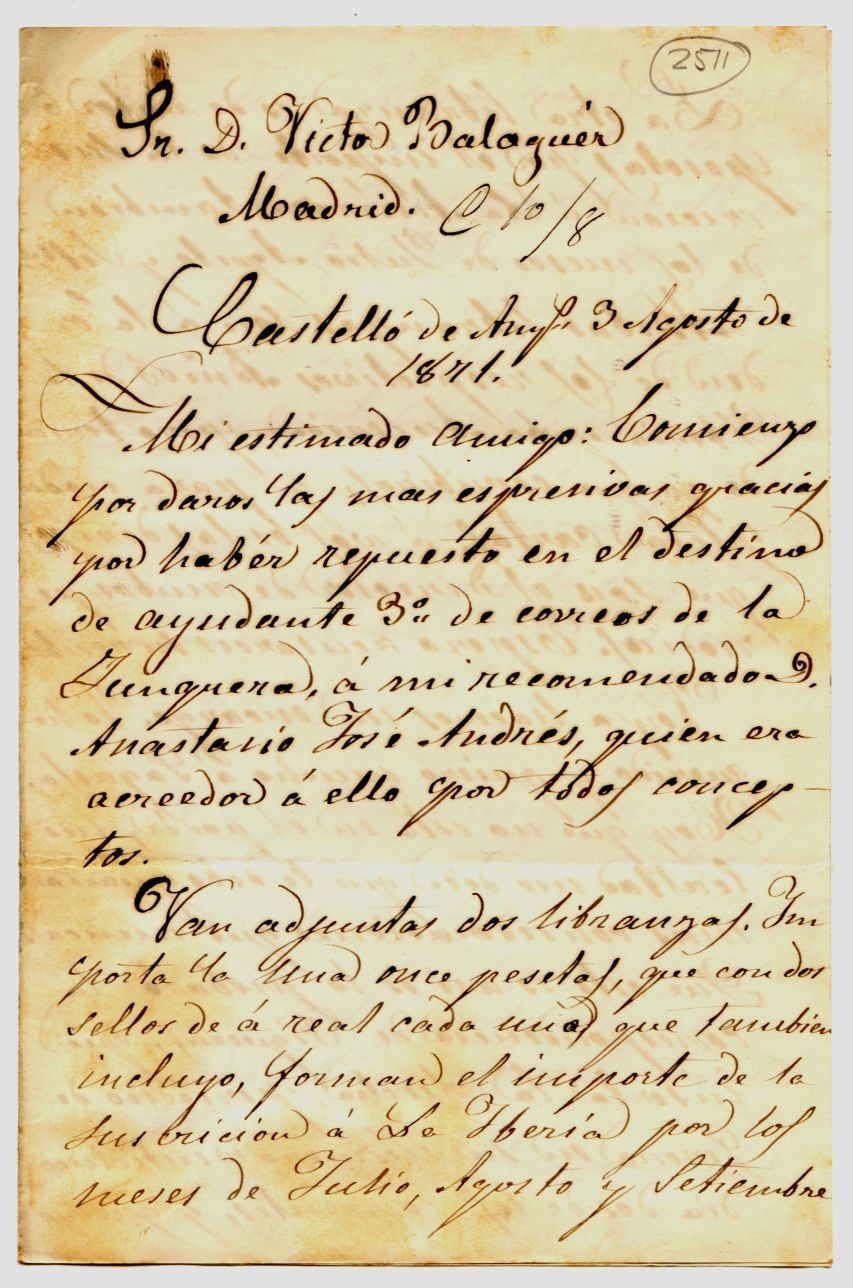 2511
Sr. D. Victor Balaguér
Madrid. C 10/8
Castelló de Amps. 3 Agosto de
1871.
Mi estimado amigo: Comienzo
por daros las mas espresivas gracias
por habér repuesto en el destino
de ayudante 3º de correos de la
Junquera, á mi recomendado D.
Anastasio José Andrés, quien era
acreedor á ello por todos concep-
tos.
Van adjuntas dos libranzas. Im
porta la una once pesetas, que con dos
sellos de á real cada uno que tambien
incluyo, forman el importe de la
suscricion á La Iberia por los
meses de Julio, Agosto y Setiembre